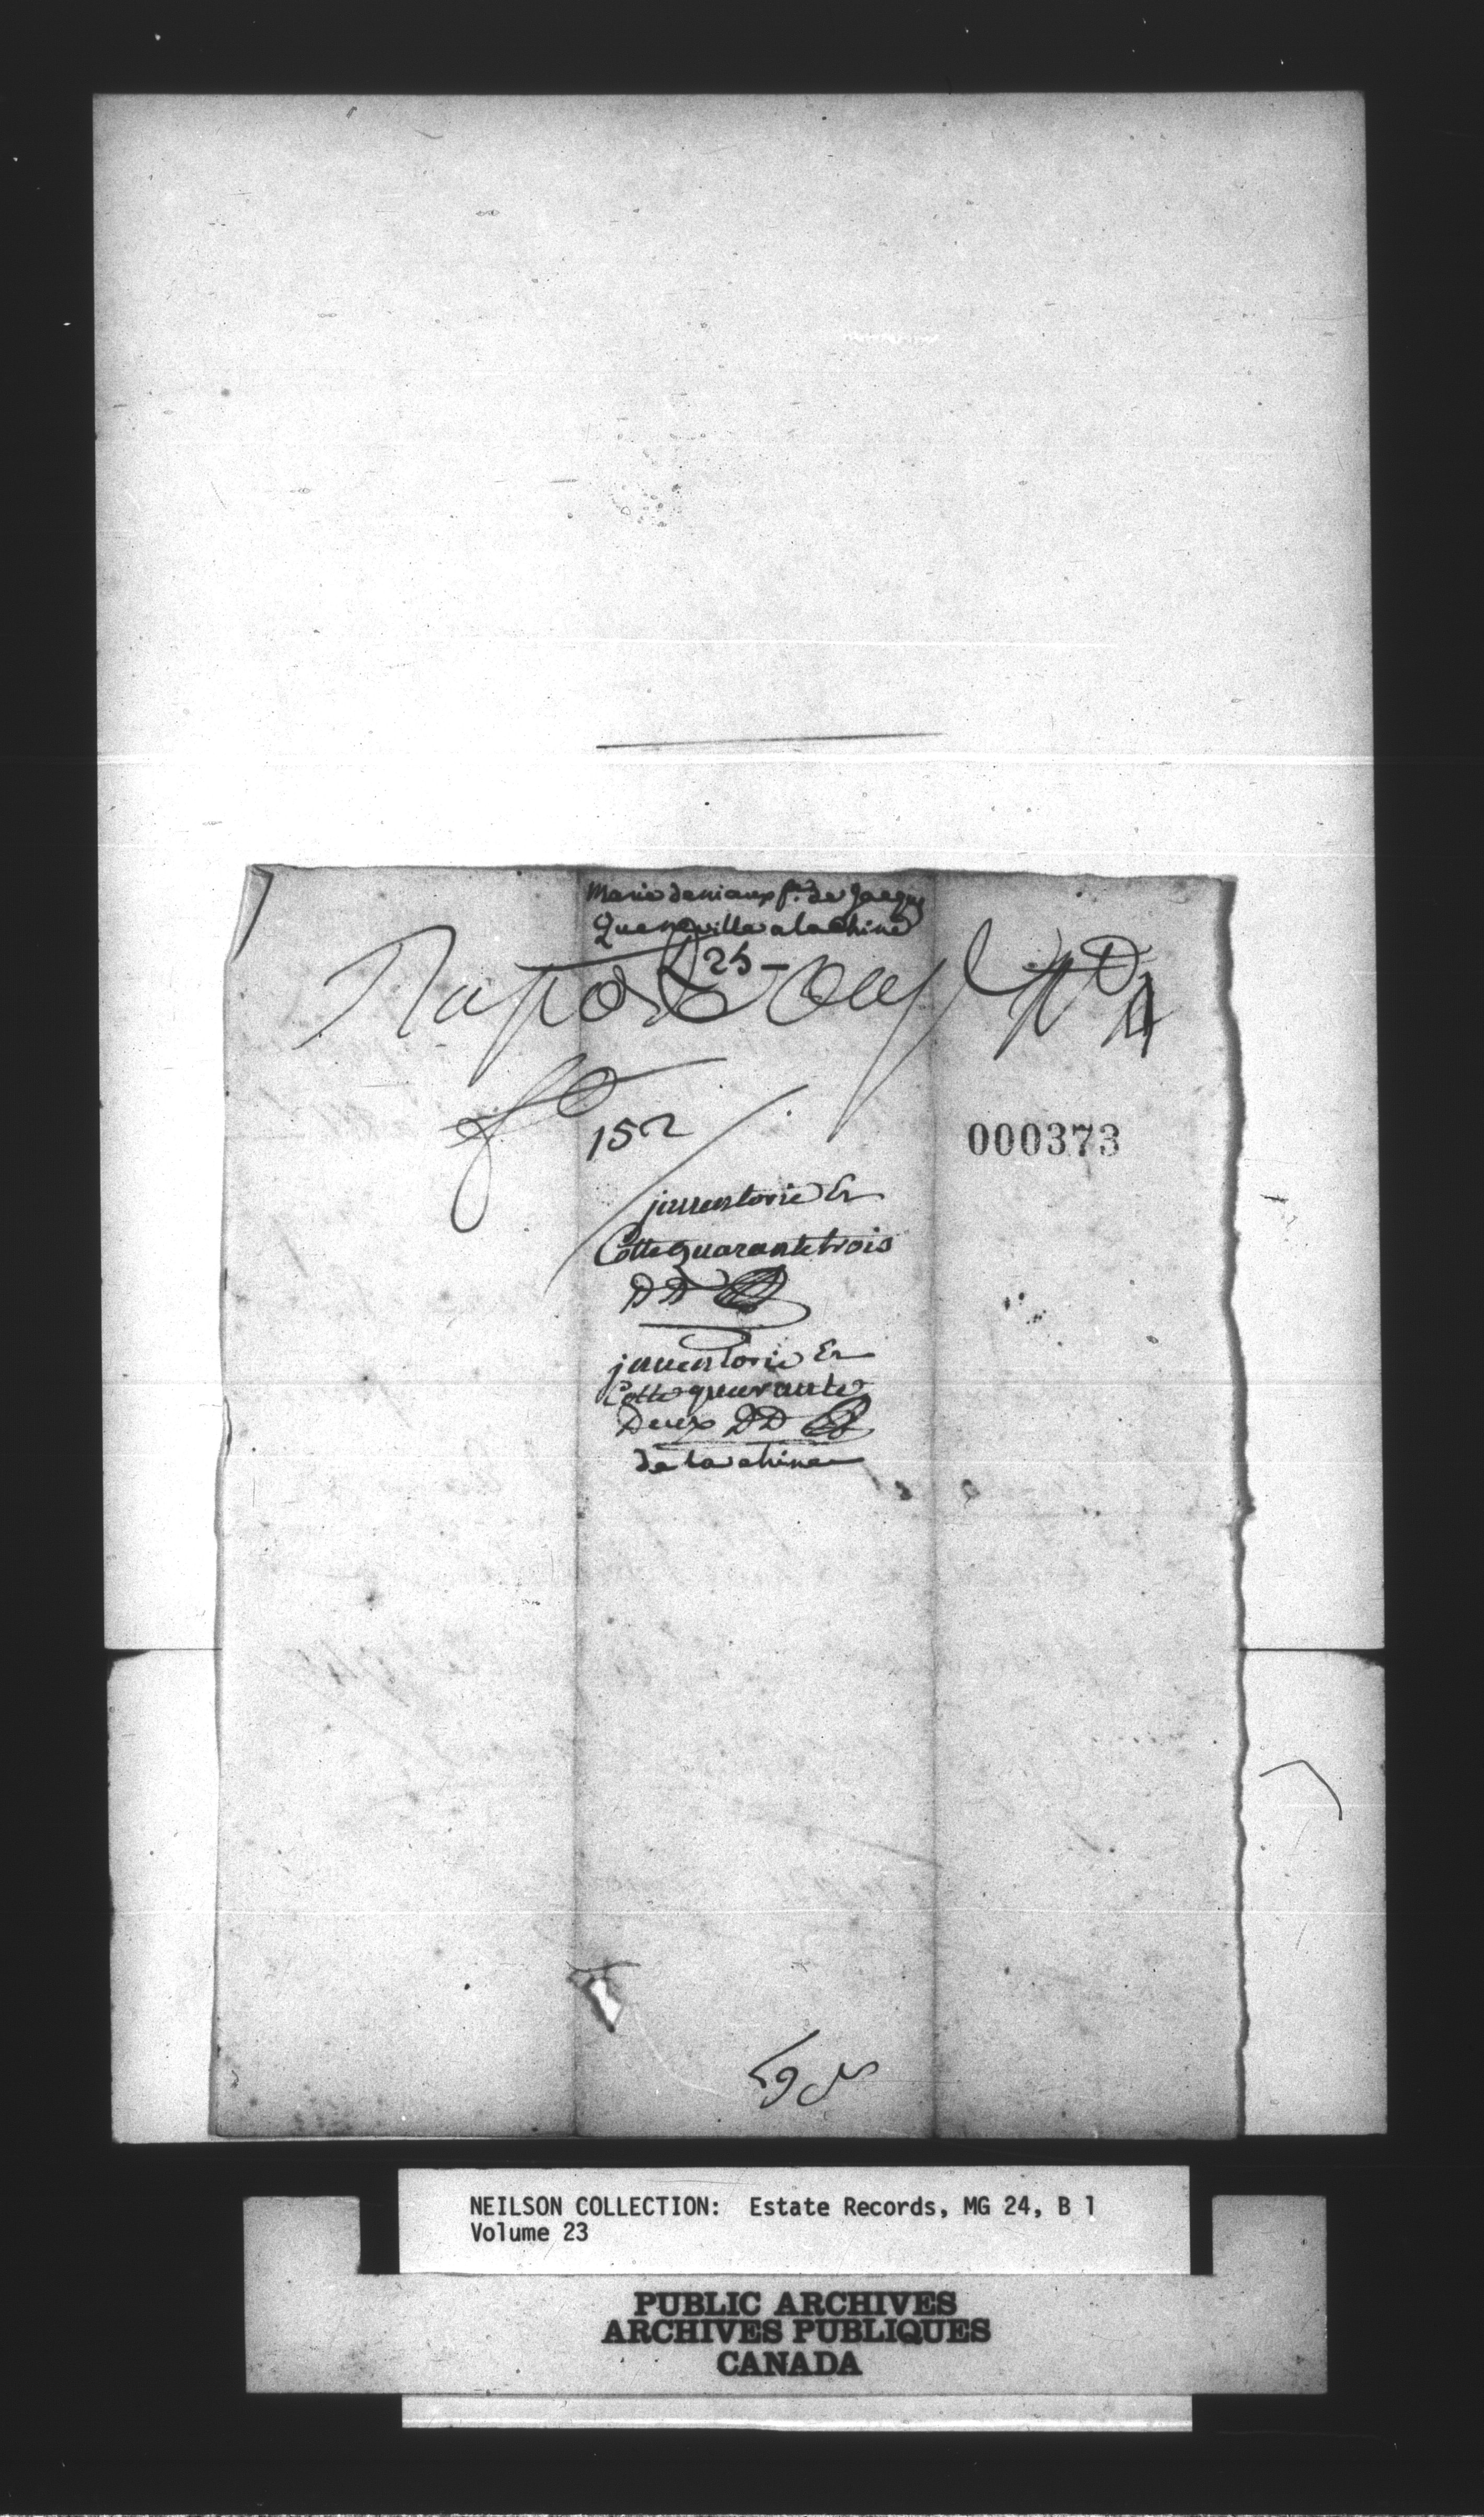 Marie deniaux fe. de Jacques
Queneville a la chine
25 -
Raporté au
fo
152
000373
jnventorié Et
Cotté quarante trois
DD
jnventorié Et
Cotté quarante
Deux DD
de la chine
NEILSON COLLECTION: Estate Records, MG 24, B 1
Volume 23
PUBLIC ARCHIVES
ARCHIVES PUBLIQUES
CANADA